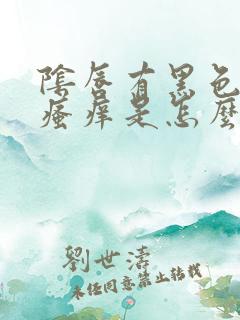 陰唇有黑色
瘙癢是怎麼
劉世濤
未經同意禁止轉載